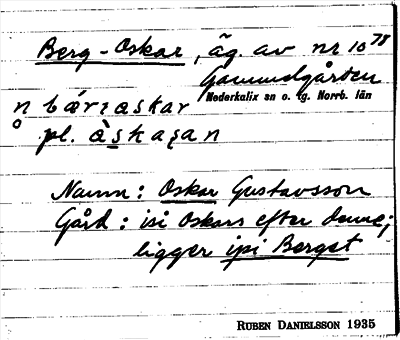 Berg-Oskar, äg. av nr 10⁷⁸
Gammelgården
Nederkalix sn o. tg. Norrb. län
n bærɩaskar
o pl. àskaʂan
Namn: Oskar Gustavsson
Gård: isi Oskars efter denne;
ligger ipi Berget
RUBEN DANIELSSON 1935